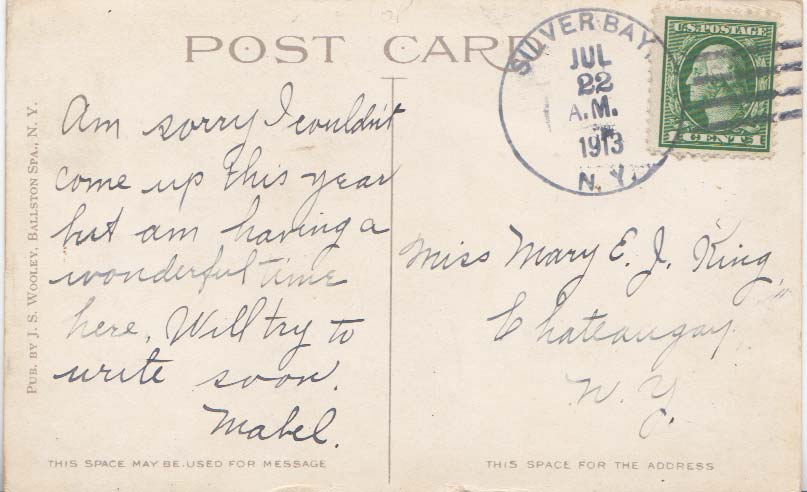 POST CARD
SILVER BAY,
JUL
22
A.M.
1913
N. Y.
U.S. POSTAGE
CENTS
PUB. BY J. S. WOOLEY, BALLSTON SPA., N. Y.
Am sorry I couldn't
come up this year
but am having a
wonderful time
here. Will try to
write soon.
Mabel.
Miss Mary E. J. King,
Chateaugay
N. Y.
THIS SPACE MAY BE USED FOR MESSAGE
THIS SPACE FOR THE ADDRESS